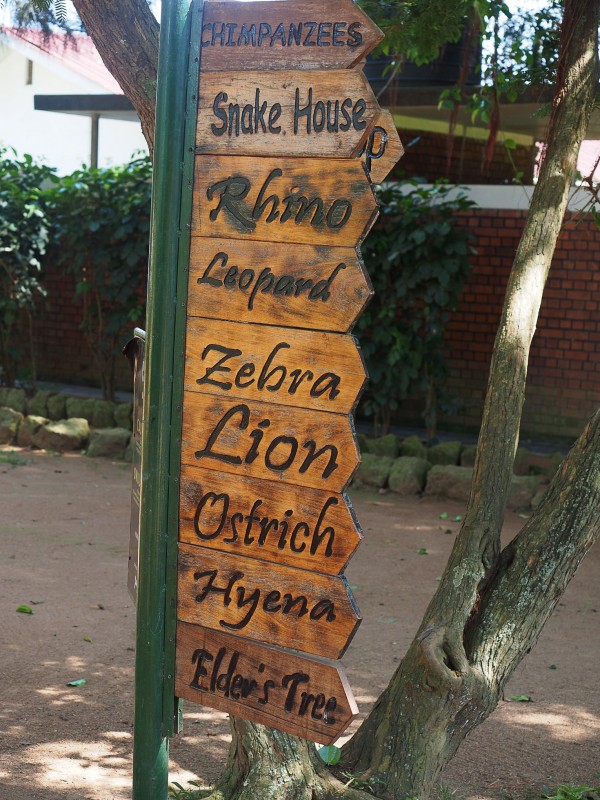 CHIMPANZEES
Snake House
Rhino
Leopard
Zebra
Lion
Ostrich
Hyena
Elder's Tree